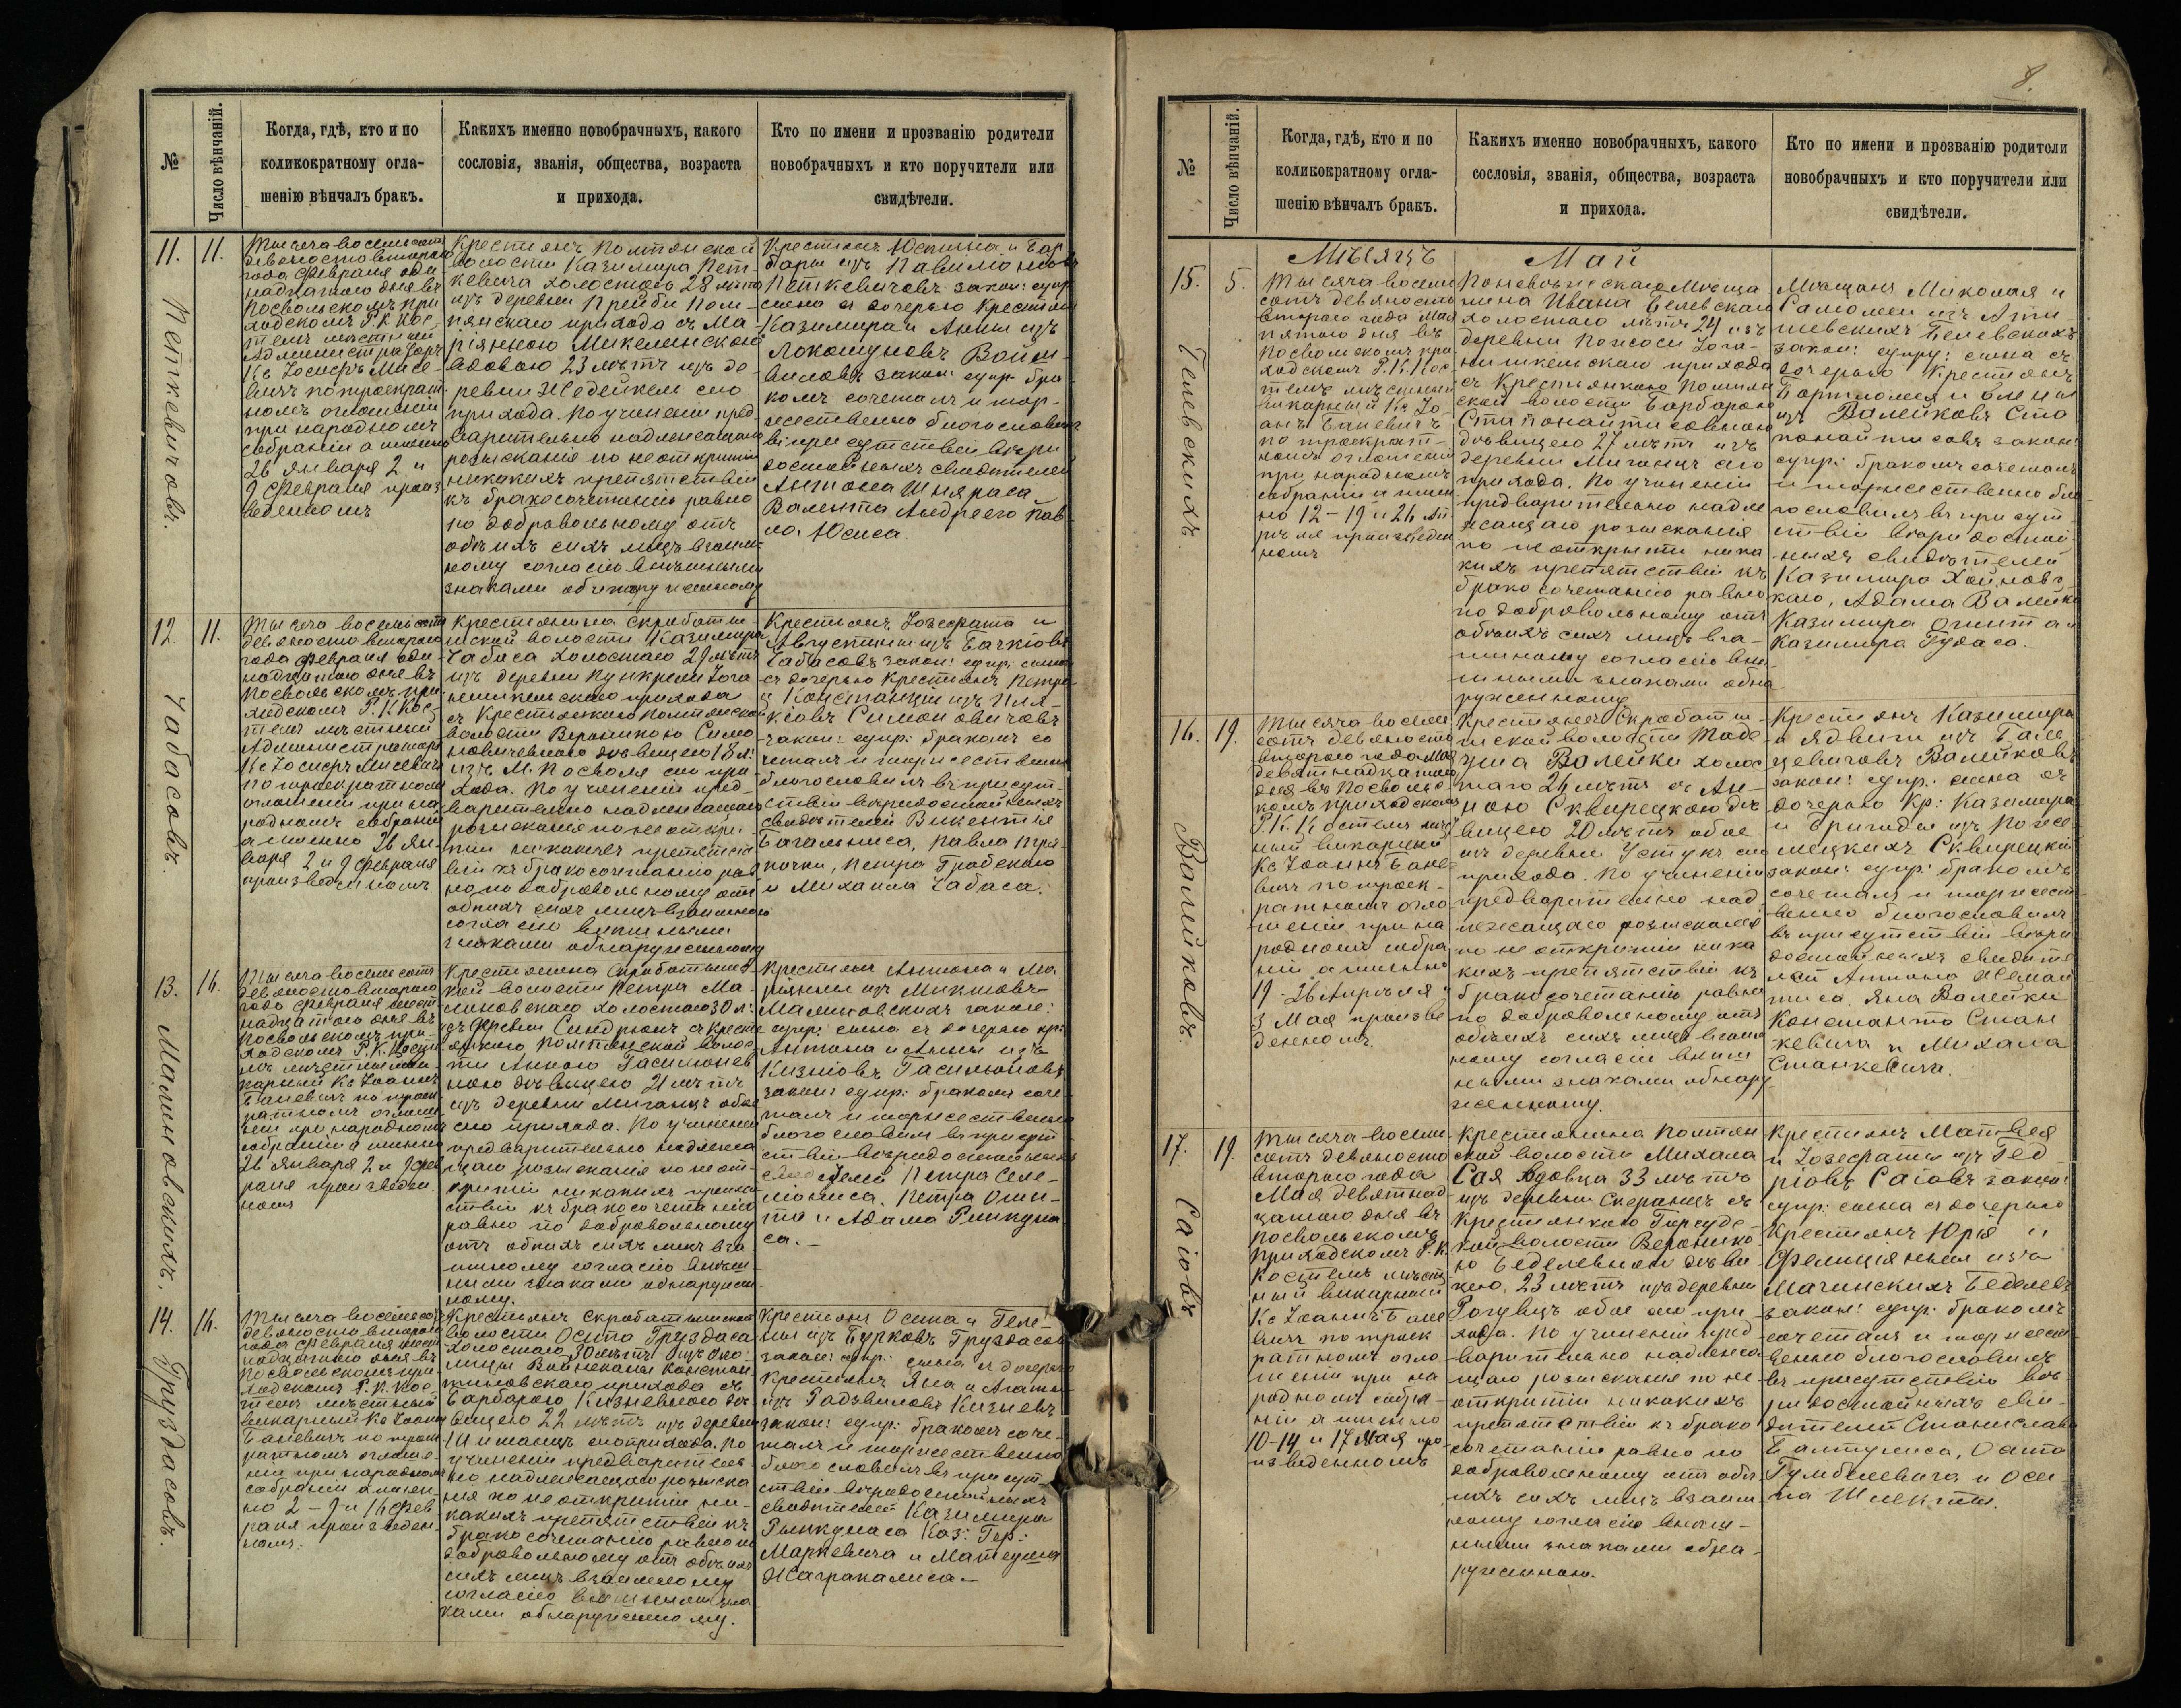 №
Число вѣнчаній.
Когда, гдѣ, кто и по
коликократному огла-
шенію вѣнчалъ бракъ.
Какихъ именно новобрачныхъ, какого
сословія, званія, общества, возраста
и прихода.
Кто по имени и прозванію родители
новобрачныхъ и кто поручители или
свидѣтели.
11.
11.
Петкевичовъ.
Тысяча восемьсотъ
девяносто втораго
года Февраля оди
надцатаго дня въ
Посвольскомъ при
ходскомъ Р. К. Кос
телѣ мѣстный
Администраторъ
Кс Іосифъ Мисе
вичъ по троекрат
номъ оглашеніи
при народномъ
собраніи а именно
26 Января 2 и
9 Февраля произ
веденномъ
Крестьянъ Помпянской
волости Казимира Пет
кевича холостаго 28 лѣтъ
изъ деревни
пянскаго прихода съ Ма
ріянною Микелинскою
вдовою 23 лѣтъ изъ де
ревни Недейкели сего
прихода. По учиненіи пред
варительно надлежащаго
розысканія по неоткрытіи
никакихъ препятствій
къ бракосочетанію равно
по добровольному отъ
обѣихъ сихъ лицъ взаим
ному согласію внѣшными
знаками обнаруженному
Крестьянъ Юстина и Бар
бары изъ Павиліоновъ
Петкевичовъ закон: супр:
сына съ дочерью Крестьянъ
Казимира и Анны изъ
Локошуновъ Войш
виловъ закон: супр: бра
комъ сочеталъ и тор
жественно благословилъ
въ присутствіи вѣри
достойныхъ свидѣтелей
Антона Шняраса
Валента Андреего Пав
ла Юсиса.
12
11.
Чабасовъ.
Тысяча восемьсотъ
девяносто втораго
года Февраля оди
надцатаго дня въ
Посвольскомъ при
ходскомъ Р. К Кос
телѣ мѣстный
Администраторъ
Кс Іосифъ Мисевичъ
по троекратномъ
оглашеніи при на
родномъ собраніи
а именно 26 Ян
варя 2 и 9 Февраля
произведенномъ
Крестьянина Скробатын
ской волости Казимира
Чабаса холостаго 29 лѣтъ
изъ деревни Пункрели Іога
нишкельскаго прихода
съ Крестьянкою Помпянской
волости Вероникою Симо
новичевною дѣвицею 18 л:
изъ М. Посволя сего при
хода. По учиненіи пред
варительно надлежащаго
розысканія по неоткры
тіи никакихъ препятст
вій къ бракосочетанію рав
но по добровольному отъ
обѣихъ сихъ лицъ взаимному
согласію внѣшными
знаками обнаруженному
Крестьянъ Іозефата и
Августины изъ Бачкіовъ
Чабасовъ закон: супр: сына
съ дочерью Крестьянъ Петра
и Констанціи изъ
Симоновичовъ
закон: супр: бракомъ со
четалъ и торжественно
благословилъ въ присут
ствіи вѣридостойныхъ
свидѣтелей Викентія
Багалыниса, Павла
Петра Гродскаго
и Михаила Чабаса.
13.
16.
Малиновскихъ.
Тысяча восемьсотъ
девяносто втораго
года Февраля шест
надцатаго дня въ
Посвольскомъ при
ходскомъ Р. К. Косте
лѣ мѣстный ви
карный Кс Іоаннъ
Баневичъ по троек
ратномъ оглаше
ніи при народномъ
собраніи а именно
26 Января 2 и 9 Фев
раля произведен
номъ
Крестьянина Скробатынс
кой волости Петра Ма
линовскаго холостаго 30 л:
изъ деревни съ кресть
янкою Помпянской волос
ти Анною Гасинонев
ною дѣвицею 21 лѣтъ
изъ деревни Миганцъ обое
сего прихода. По учиненіи
предварительно надлежа
щаго розысканія по неот
крытіи никакихъ препят
ствій къ бракосочетанію
равно по добровольному
отъ обѣихъ сихъ лицъ вза
имному согласію внѣш
ными знаками обнаружен
ному.
Крестьянъ Антона и Ма
ріянны изъ
Малиновскихъ закон:
супр: сына съ дочерью кр:
Антона и Анны изъ
закон: супр: бракомъ соче
талъ и торжественно
благословилъ въ присут
ствіи вѣридостойныхъ
свидѣтелей Петра Селе
ніониса, Петра Оши
та и Адама Ринкуна
са.
14.
16.
Груздасовъ.
Тысяча восемьсотъ
девяносто втораго
года Февраля шест
надцатаго дня въ
Посвольскомъ при
ходскомъ Р. К. Кос
телѣ мѣстный
викарный Кс Іоаннъ
Баневичъ по троек
ратномъ оглаше
ніи при народномъ
собраніи а имен
но 2 – 9 и 16 Фев
раля произведен
номъ.
Крестьянъ Скробатынской
волости Осипа Груздаса
холостаго 30 лѣтъ изъ око
лицы Войнеканы Констан
тиновскаго прихода съ
Барбарою Кизневною дѣ
вицею 22 лѣтъ изъ деревни
сего прихода. По
учиненіи предваритель
но надлежащаго розыска
нія по неоткрытіи ни
какихъ препятствій къ
бракосочетанію равно по
добровольному отъ обѣихъ
сихъ лицъ взаимному
согласію внѣшными зна
ками обнаруженному.
Крестьянъ Осипа и Геле
ны изъ Бурковъ Груздасовъ
закон: супр: сына съ дочерью
Крестьянъ Яна и Агаты
изъ Радзвиловъ Кизневъ
закон: супр: бракомъ соче
талъ и торжественно
благословилъ въ присут
ствіи вѣридостойныхъ
свидѣтелей Казимира
Рынкунаса Каз: Гер:
Маркевича и Матеуша
Жагракалиса.
8.
№
Число вѣнчаній.
Когда, гдѣ, кто и по
коликократному огла-
шенію вѣнчалъ бракъ.
Какихъ именно новобрачныхъ, какого
сословія, званія, общества, возраста
и прихода.
Кто по имени и прозванію родители
новобрачныхъ и кто поручители или
свидѣтели.
Мѣсяцъ Май
15.
5.
Белевскихъ.
Тысяча восемь
сотъ девяносто
втораго года Мая
пятаго дня въ
Посвольскомъ при
ходскомъ Р. К. Кос
телѣ мѣстный
викарный Кс Іо
аннъ Баневичъ
по троекрат
номъ оглашеніи
при народномъ
собраніи а имен
но 12 – 19 и 26 Ап
рѣля произведен
номъ
Поневѣжскаго Мѣща
нина Ивана Белевскаго
холостаго лѣтъ 24 изъ
деревни Пожоси Іога
нишкельскаго прихода
съ Крестьянкою Помпян
ской волости Барбарою
Стапонайтисовною
дѣвицею 27 лѣтъ изъ
деревни Миганцъ сего
прихода. По учиненіи
предварительно надле
жащаго розысканія
по неоткрытіи ника
кихъ препятствій къ
бракосочетанію равно
по добровольному отъ
обѣихъ сихъ лицъ вза
имному согласію внѣ
шными знаками обна
руженному
Мѣщанъ Миколая и
Саломеи изъ
Белевскихъ
закон: супру: сына съ
дочерью Крестьянъ
Бартломея и Елены
изъ Валейковъ Ста
понайтисовъ закон:
супр: бракомъ сочеталъ
и торжественно бла
гословилъ въ присут
ствіи вѣридостой
ныхъ свидѣтелей
Казимира Хойновс
каго, Адама Валейки
Казимира Ошита и
Казимира Гудаса.
16.
19.
Валейковъ.
Тысяча восемь
сотъ девяносто
втораго года Мая
девятнадцатаго
дня въ Посвольс
комъ приходскомъ
Р. К. Костелѣ мѣст
ный викарный
Кс Іоаннъ Бане
вичъ по троек
ратномъ огла
шеніи при на
родномъ собра
ніи а именно
19 – 26 Апрѣля и
3 Мая произве
денномъ.
Крестьянъ Скробатын
ской волости Таде
уша Валейки холос
таго 24 лѣтъ съ Ан
ною Сквирецкою дѣ
вицею 20 лѣтъ обое
изъ деревни Устукъ сего
прихода. По учиненіи
предварительно над
лежащаго розысканія
по неоткрытіи ника
кихъ препятствій къ
бракосочетанію равно
по добровольному отъ
обѣихъ сихъ лицъ взаим
ному согласію внѣш
ными знаками обнару
женному.
Крестьянъ Казимира
и Ядвиги изъ
Валейковъ
закон: супр: сына съ
дочерью Кр: Казимира
и Бригиды изъ
Сквирецкихъ
закон: супр: бракомъ
сочеталъ и торжест
венно благословилъ
въ присутствіи вѣри
достойныхъ свидѣте
лей Антона Жемай
тиса, Яна Валейки
Константа Стан
кевича и Михала
Станкевича.
17.
19.
Саіовъ
Тысяча восемь
сотъ девяносто
втораго года
Мая девятнад
цатаго дня въ
Посвольскомъ
приходскомъ Р. К.
Костелѣ мѣст
ный викарный
Кс Іоаннъ Бане
вичъ по троек
ратномъ огла
шеніи при на
родномъ собра
ніи а именно
10–14 и 17 Мая про
изведенномъ
Крестьянина Помпян
ской волости Михала
Сая вдовца 33 лѣтъ
изъ деревни Скеранцъ съ
Крестьянкою
волости Вероника
ю Беделевною дѣви
цею 23 лѣтъ изъ деревни
Рагувцъ обое сего при
хода. По учиненіи пред
варительно надлежа
щаго розысканія по не
открытіи никакихъ
препятствій къ брако
сочетанію равно по
добровольному отъ обѣ
ихъ сихъ лицъ взаим
ному согласію внѣш
ными знаками обна
руженному.
Крестьянъ Матвея
и Іозефаты изъ Гед
ріовъ Саіовъ закон:
супр: сына съ дочерью
Крестьянъ Юрія и
Фелиціянны изъ
Мачинскихъ Беделевъ
закон: супр: бракомъ
сочеталъ и торжест
венно благословилъ
въ присутствіи вѣ
ридостойныхъ сви
дѣтелей Станислава
Балтулиса, Осипа
Гумбилевича и Оси
па